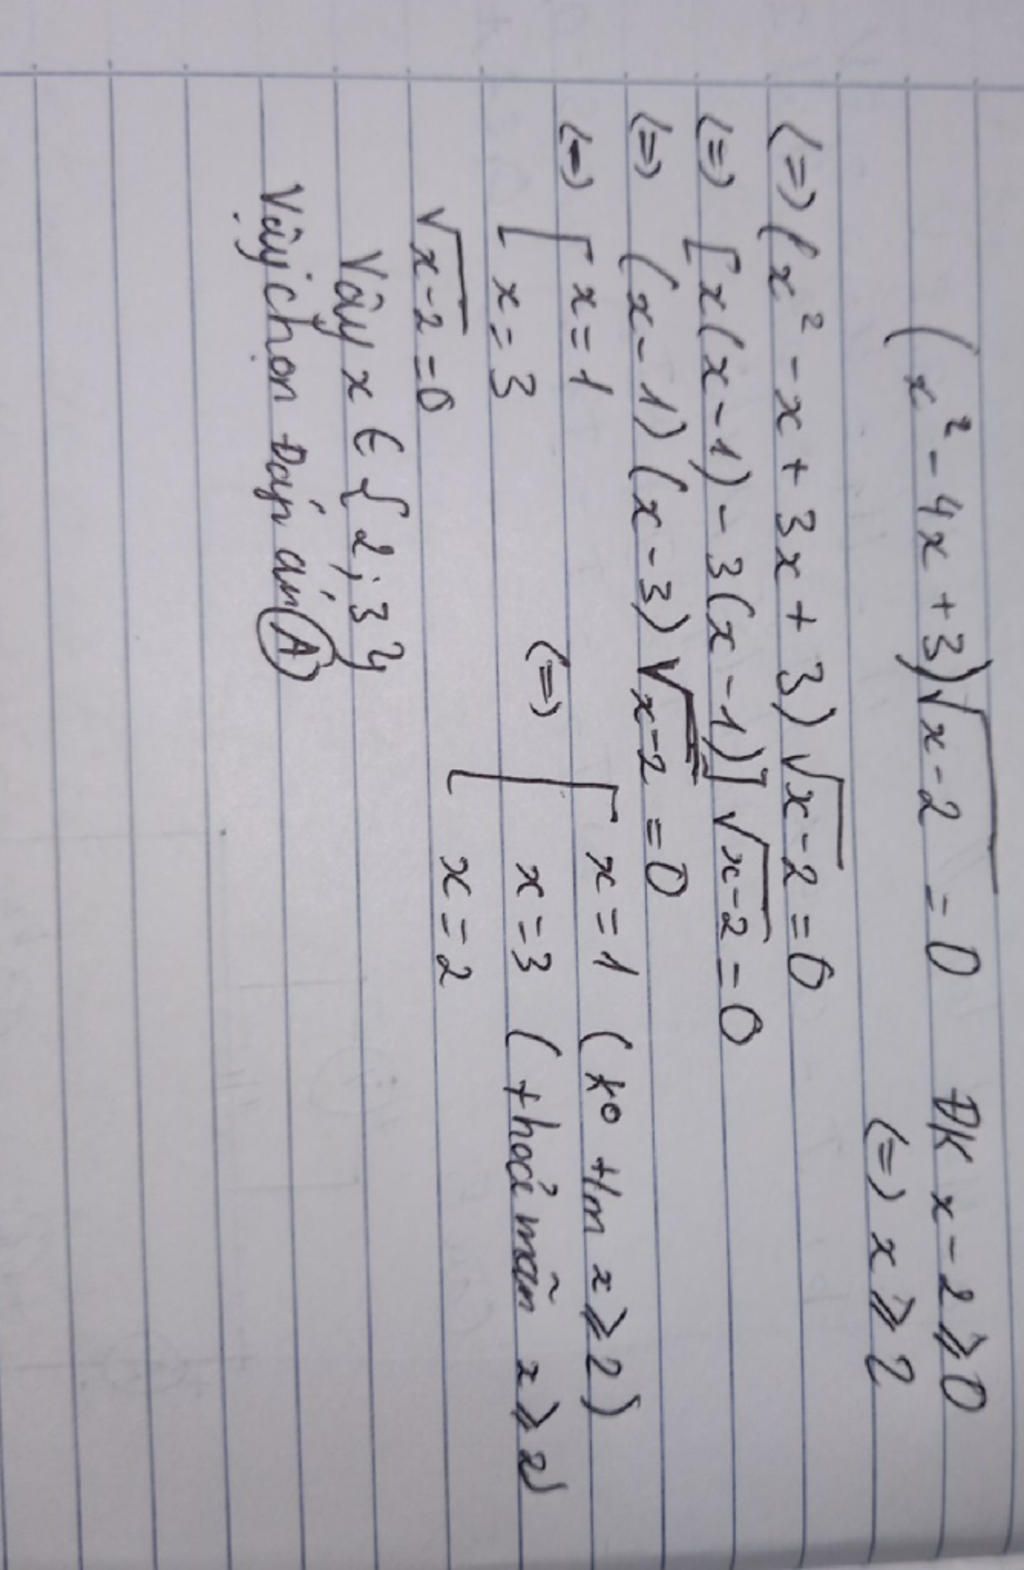 (x² - 4x + 3)√x-2 = 0 ĐK x - 2 ⩾ 0
(=) x ⩾ 2
(=) (x² - x + 3x + 3)√x-2 = 0
(=) [x(x-1) - 3(x-1)]√x-2 = 0
(=) (x-1)(x-3)√x-2 = 0
(=) [ x = 1
x = 3
√x-2 = 0
(=) [ x = 1 (k° t/m x ⩾ 2)
x = 3 (thoả mãn x ⩾ 2)
x = 2
Vậy x ∈ {2; 3}
Vậy chọn Đáp án A